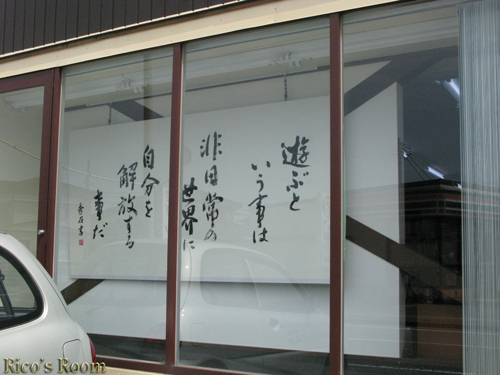 遊ぶと
いう事は
非日常の
世界に
自分を
解放する
事だ
Rico's Room